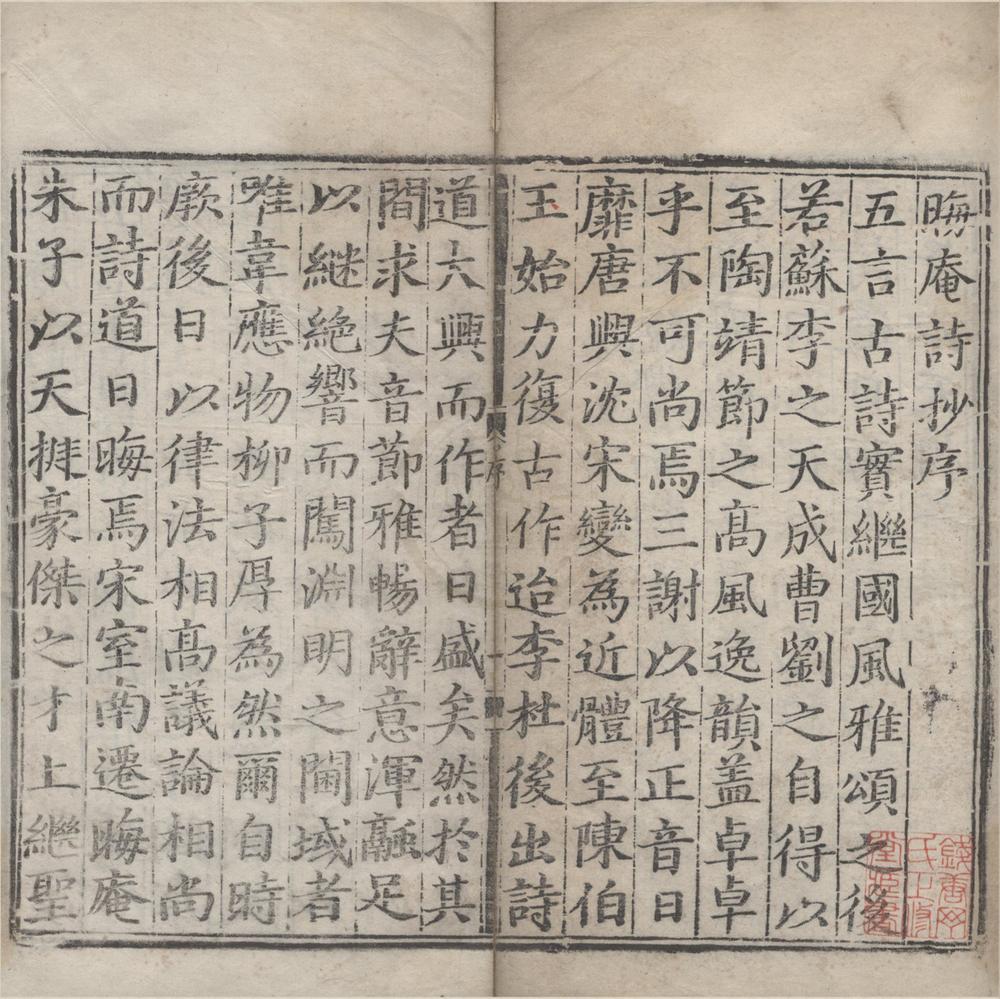 晦庵詩抄序
五言古詩實繼國風雅頌之後
若蘇李之天成曹劉之自得以
至陶靖節之髙風逸韻盖卓卓
乎不可尚焉三謝以降正音日
靡唐興沈宋變為近體至陳伯
玉始力復古作迨李杜後出詩
道大興而作者日盛矣然於其
間求夫音節雅暢辭意渾融足
以継絶響而闖淵明之閫域者
唯韋應物柳子厚為然爾自時
厥後日以律法相髙議論相尚
而詩道日晦焉宋室南遷晦庵
朱子以天挺豪傑之才上繼聖